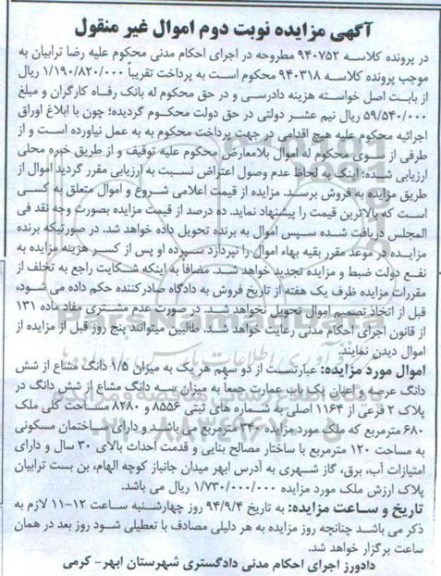 آگهی مزایده نوبت دوم اموال غیر منقول
در پرونده کلاسه ۹۴۰۷۵۲ مطروحه در اجرای احکام مدنی محکوم علیه رضا ترابیان به
موجب پرونده کلاسه ۹۴۰۳۱۸ محکوم است به پرداخت تقریباً ۱/۱۹۰/۸۲۰/۰۰۰ ریال
از بابت اصل خواسته هزینه دادرسی و در حق محکوم له بانک رفاه کارگران و مبلغ
۵۹/۵۴۰/۰۰۰ ریال نیم عشر دولتی در حق دولت محکوم گردیده؛ چون با ابلاغ اوراق
اجرائیه محکوم علیه هیچ اقدامی در جهت پرداخت محکوم به به عمل نیاورده است و از
طرفی از سوی محکوم له اموال بلامعارض محکوم علیه توقیف و از طریق خبره محلی
ارزیابی شده؛ اینک به لحاظ عدم وصول اعتراض نسبت به ارزیابی مقرر گردید اموال از
طریق مزایده به فروش برسد. مزایده از قیمت اعلامی شروع و اموال متعلق به کسی
است که بالاترین قیمت را پیشنهاد نماید. ده درصد از قیمت مزایده بصورت وجه نقد فی
المجلس دریافت شده سپس اموال به برنده تحویل داده خواهد شد. در صورتیکه برنده
مزایده در موعد مقرر بقیه بهاء اموال را نپردازد سپرده او پس از کسر هزینه مزایده به
نفع دولت ضبط و مزایده تجدید خواهد شد. مضافا به اینکه شکایت راجع به تخلف از
مقررات مزایده ظرف یک هفته از تاریخ فروش به دادگاه صادر کننده حکم داده می شود،
قبل از اتخاذ تصمیم اموال تحویل نخواهد شد. در صورت عدم مشتری مفاد ماده ۱۳۱
از قانون اجرای احکام مدنی رعایت خواهد شد. طالبین میتوانند پنج روز قبل از مزایده از
اموال دیدن نمایند.
اموال مورد مزایده: عبارتست از دو سهم هر یک به میزان ۱/۵ دانگ مشاع از شش
دانگ عرصه و اعیان یک باب عمارت جمعاً به میزان سه دانگ مشاع از شش دانگ در
پلاک ۲ فرعی از ۱۱۶۴ اصلی به شماره های ثبتی ۸۵۵۶ و ۸۲۸۰ مساحت کلی ملک
۶۸۰ مترمربع که ملک مورد مزایده ۳۴۰ مترمربع می باشد و دارای ساختمان مسکونی
به مساحت ۱۲۰ مترمربع با ساختار مصالح بنایی و قدمت احداث بالای ۳۰ سال و دارای
امتیازات آب، برق، گاز شهری به آدرس ابهر میدان جانباز کوچه الهام، بن بست ترابیان
پلاک ارزش ملک مورد مزایده ۱/۷۳۰/۰۰۰/۰۰۰ ریال می باشد.
تاریخ و ساعت مزایده: به تاریخ ۹۴/۹/۴ روز چهارشنبه ساعت ۱۲-۱۱ لازم به
ذکر می باشد چنانچه روز مزایده به هر دلیلی مصادف با تعطیلی شود روز بعد در همان
ساعت برگزار خواهد شد.
دادورز اجرای احکام مدنی دادگستری شهرستان ابهر- کرمی